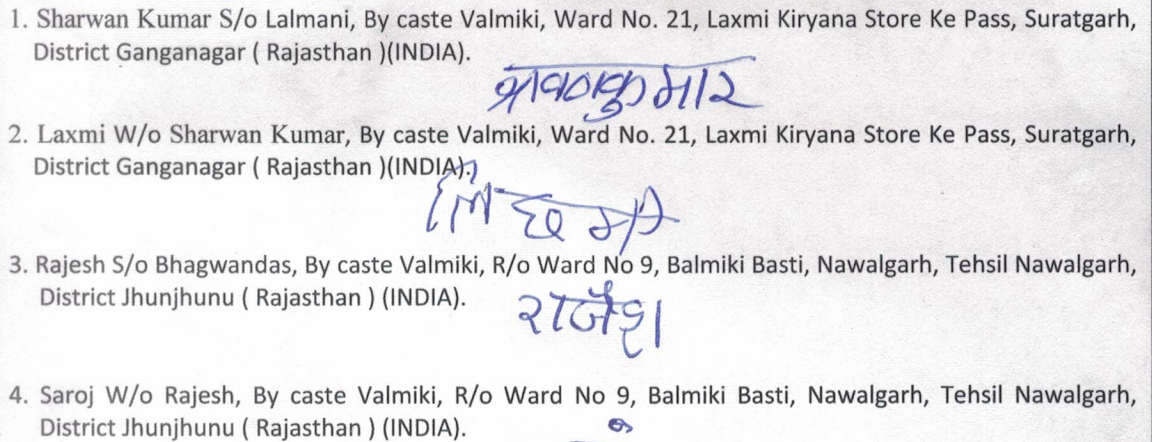 1. Sharwan Kumar S/o Lalmani, By caste Valmiki, Ward No. 21, Laxmi Kiryana Store Ke Pass, Suratgarh,
District Ganganagar ( Rajasthan )(INDIA).
श्रवणकुमार
2. Laxmi W/o Sharwan Kumar, By caste Valmiki, Ward No. 21, Laxmi Kiryana Store Ke Pass, Suratgarh,
District Ganganagar ( Rajasthan )(INDIA).
3. Rajesh S/o Bhagwandas, By caste Valmiki, R/o Ward No 9, Balmiki Basti, Nawalgarh, Tehsil Nawalgarh,
District Jhunjhunu ( Rajasthan ) (INDIA).
राजेश
4. Saroj W/o Rajesh, By caste Valmiki, R/o Ward No 9, Balmiki Basti, Nawalgarh, Tehsil Nawalgarh,
District Jhunjhunu ( Rajasthan ) (INDIA).